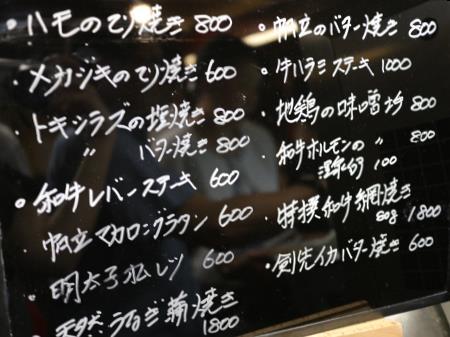 ・ハモのてり焼き 800
・メカジキのてり焼き 600
・トキシラズの塩焼き 800
〃 バター焼き 800
・和牛レバーステーキ 600
・帆立マカロニグラタン 600
・明太子オムレツ 600
・天然うなぎ蒲焼き
1800
・帆立のバター焼き 800
・牛ハラミステーキ 1000
・地鶏の味噌 800
・和牛ホルモンの 〃 800
100
・特撰和牛網焼き
80g 1800
・剣先イカバター焼き 600